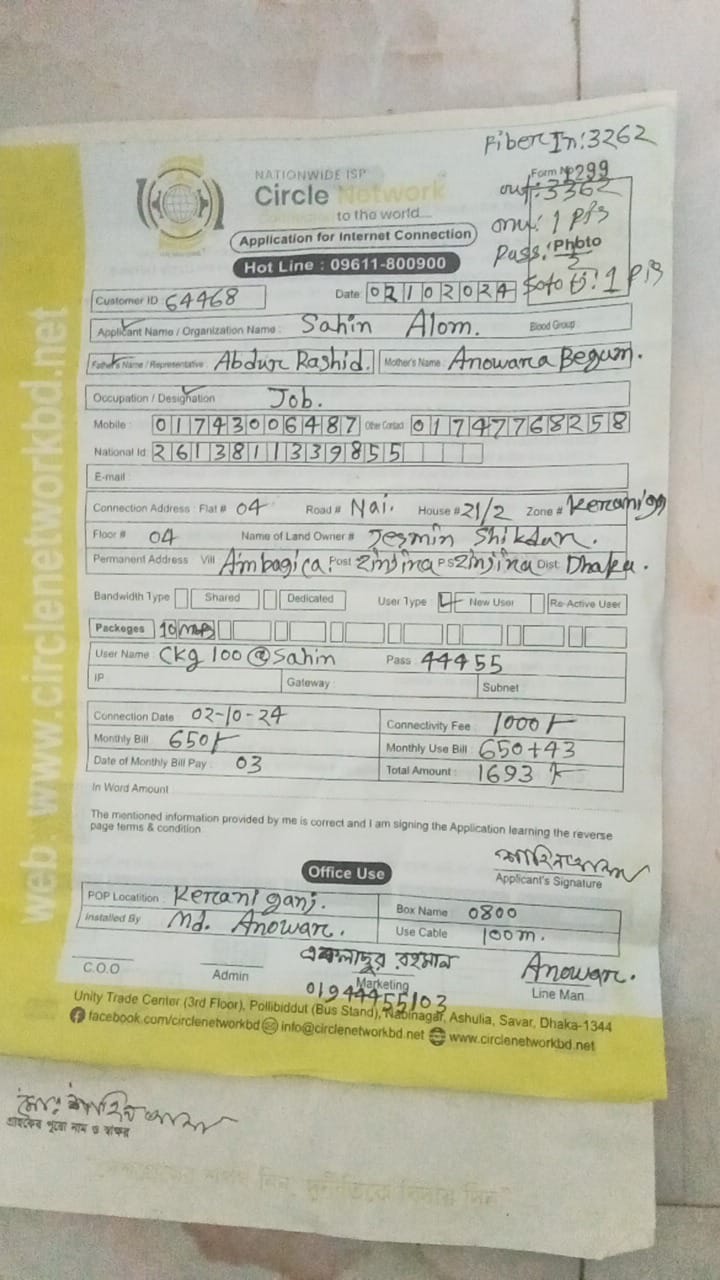 Fiber In: 3262
NATIONWIDE ISP
Form No 299
Circle Network
out: 3362
to the world....
onu: 1 Pis
Application for Internet Connection
Pass: Photo
Hot Line : 09611-800900
Customer ID 64468 Date: 02102024
Applicant Name / Organization Name : Sahin Alom. Blood Group
Father's Name / Representative : Abdur Rashid. Mother's Name : Anowara Begum.
Occupation / Designation Job.
Mobile : 01743006487 Other Contact 01747768258
National Id 2613811339855
E-mail
Connection Address : Flat # 04 Road # Nai. House # 21/2 Zone # Keranigg
Floor # 04 Name of Land Owner # Jesmin Shikdar.
Permanent Address Vill Ambagica Post Zinjira PS Zinjira Dist. Dhaka.
Bandwidth Type Shared Dedicated User Type New User Re-Active User
Packeges 10 MB
User Name : Ckg 100@Sahin Pass : 44455
IP Gateway : Subnet
Connection Date 02-10-24 Connectivity Fee : 1000/-
Monthly Bill 650/- Monthly Use Bill : 650+43
Date of Monthly Bill Pay : 03 Total Amount : 1693/-
In Word Amount
The mentioned information provided by me is correct and I am signing the Application learning the reverse
page terms & condition
শাহিন আলম
Applicant's Signature
Office Use
POP Locatition : Keraniganj. Box Name : 0800
Installed By Md. Anowar. Use Cable 100m.
এখলাদুর রহমান Anowar.
C.O.O Admin Marketing Line Man
01944455103
Unity Trade Center (3rd Floor), Pollibiddut (Bus Stand), Nabinagar, Ashulia, Savar, Dhaka-1344
facebook.com/circlenetworkbd info@circlenetworkbd.net www.circlenetworkbd.net
web : www.circlenetworkbd.net
মোঃ শাহিন আলম
গ্রাহকের পুরো নাম ও স্বাক্ষর